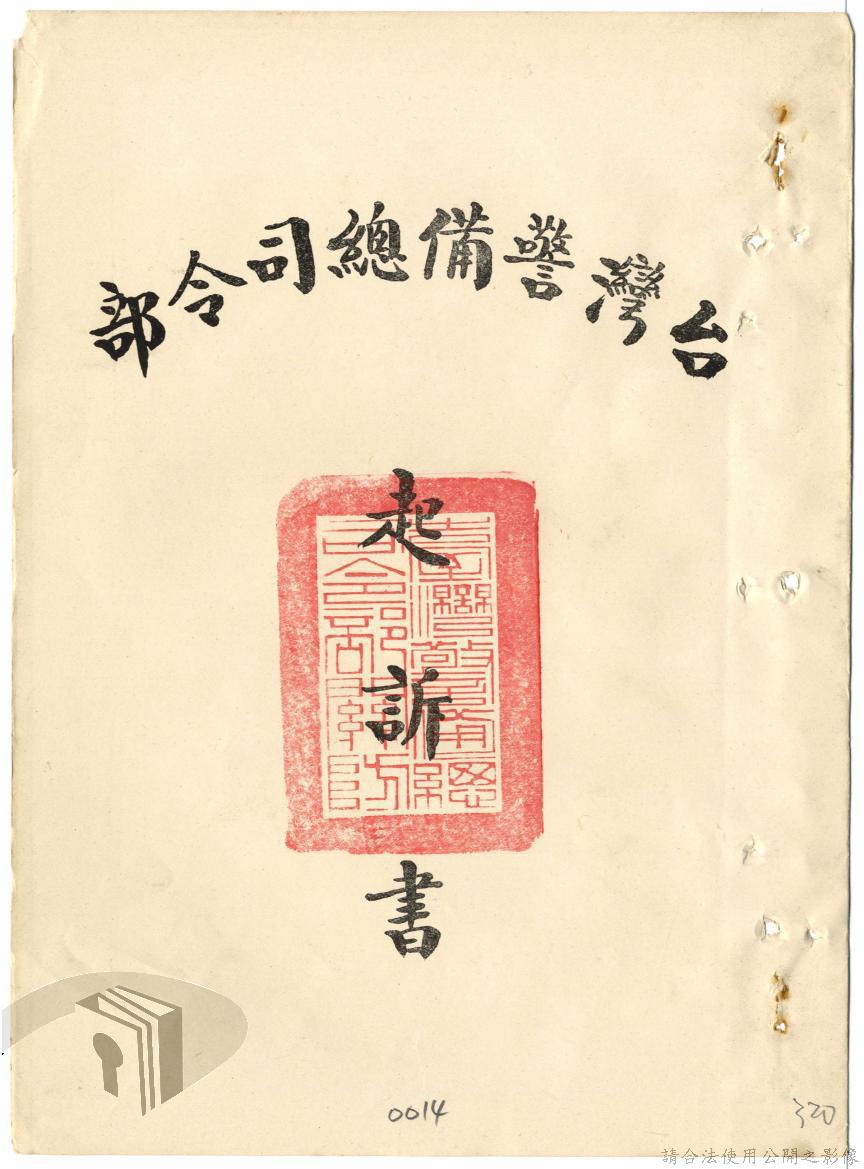 台灣警備總司令部
起訴書
0014
320
請合法使用公開之影像